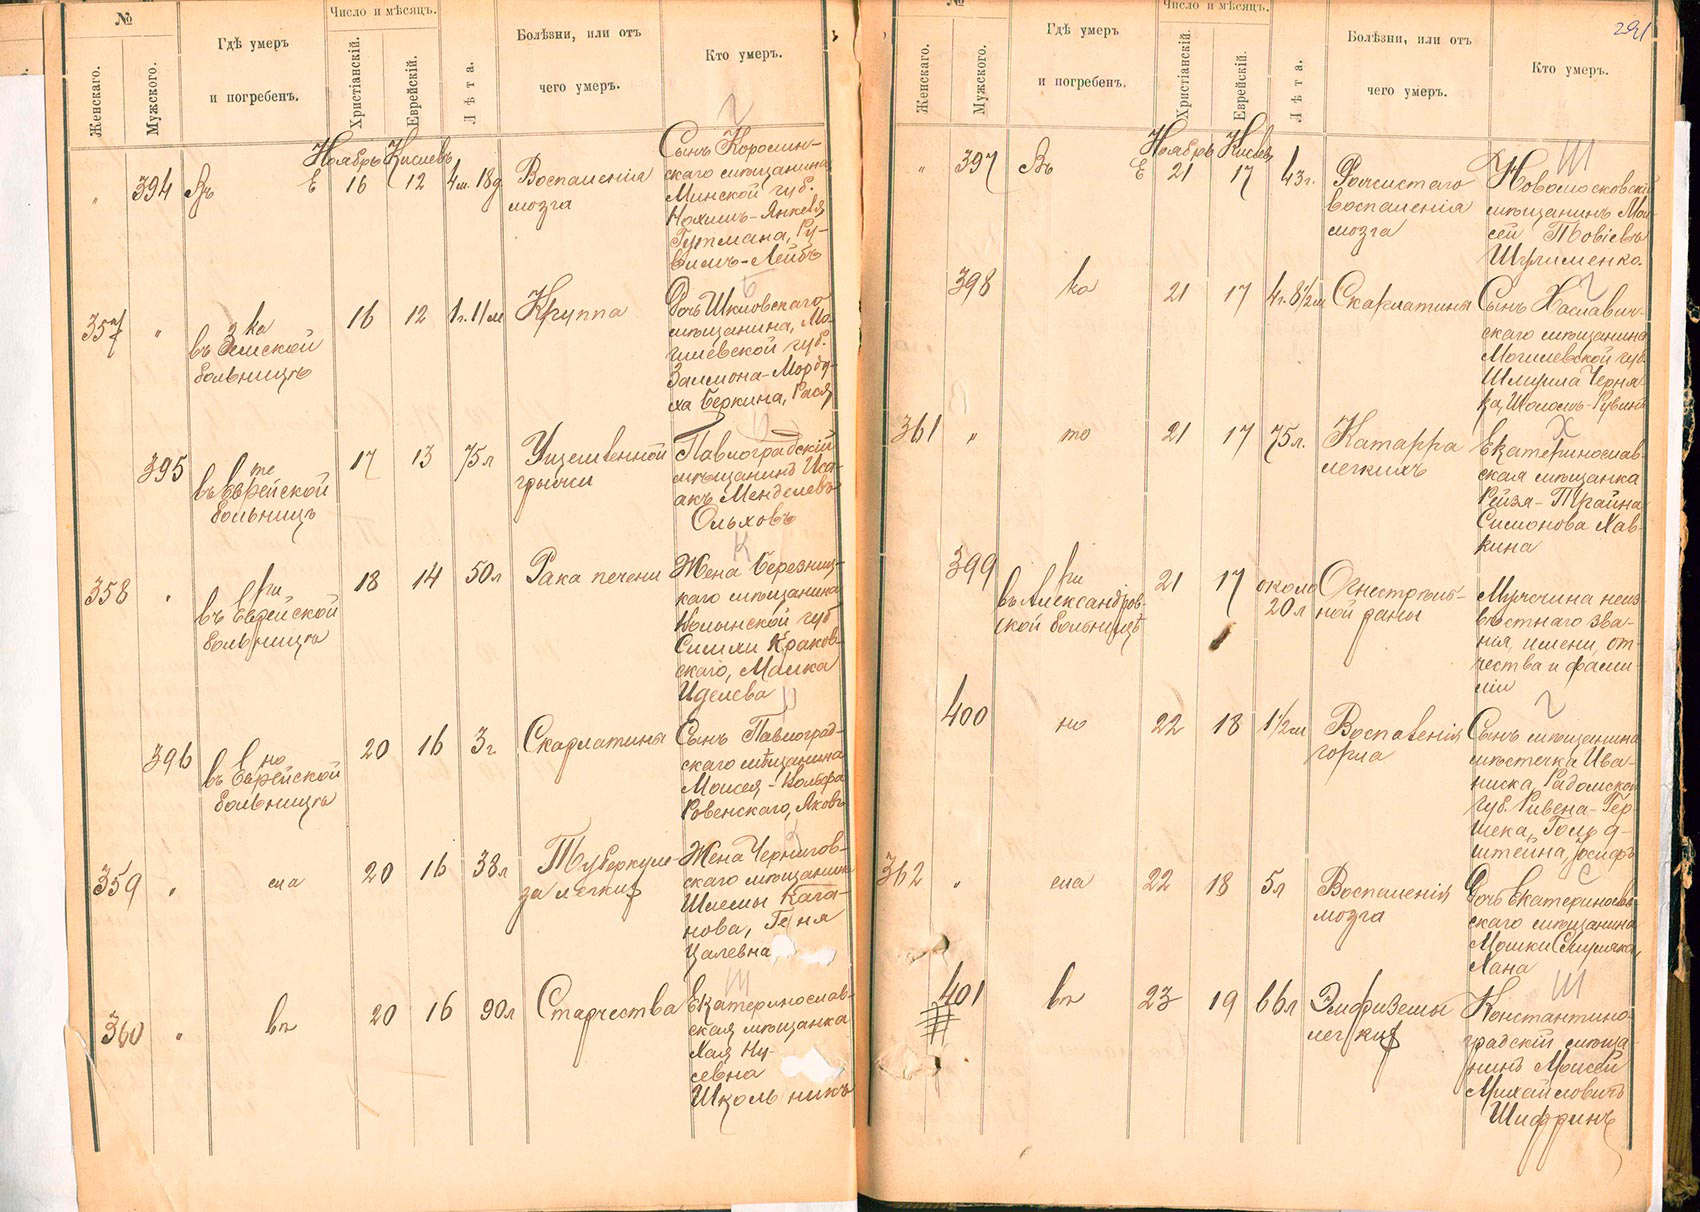 №
Женскаго.
Мужского.
Гдѣ умеръ
и погребенъ.
Число и мѣсяцъ.
Христіанскій.
Еврейскій.
Лѣта.
Болѣзни, или отъ
чего умеръ.
Кто умеръ.
Ноябрь Кислевъ
" 394 Въ Е 16 12 4 м. 18 д
Воспаленія
мозга
Сынъ Коромин-
скаго мѣщанина
Минской губ.
Нахимъ-Янкеля
Гутмана, Ру-
вимъ-Лейбъ
357 " ка
въ Земской
больницѣ
16 12 1 г. 11 м
Круппа
Дочь Шкловскаго
мѣщанина, Мо-
гилевской губ.
Залмона-Морду-
ха Беркина, Рася
395 те
въ Еврейской
больницѣ
17 13 75 л
Ущемленной
грыжи
Павлоградскій
мѣщанинъ Иса-
акъ Менделевъ
Ольховъ
358 " ри
въ Еврейской
больницѣ
18 14 50 л
Рака печени
Жена Березниц-
каго мѣщанина
Волынской губ
Симхи Краков-
скаго, Малка
Иделева
396 но
въ Еврейской
больницѣ
20 16 3 г
Скарлатины
Сынъ Павлоград-
скаго мѣщанина
Моисея-Вольфа
Ровенскаго, Яковъ
359 " сла 20 16 38 л
Туберкуле-
за легкихъ
Жена Чернигов-
скаго мѣщанина
Шлемы Кага-
нова, Геня
Цалевна
360 " въ 20 16 90 л
Старчества
Екатеринослав-
ская мѣщанка
Хая Ну-
севна
Школьникъ
291
№
Женскаго.
Мужского.
Гдѣ умеръ
и погребенъ.
Число и мѣсяцъ.
Христіанскій.
Еврейскій.
Лѣта.
Болѣзни, или отъ
чего умеръ.
Кто умеръ.
Ноябрь Кислевъ
" 397 Въ Е 21 17 43 г.
воспаленія
мозга
Новомосковскій
мѣщанинъ Мои-
сей Товіевъ
Шулименко.
398 ка 21 17 4 г. 8 1/2 м
Скарлатины
Сынъ Хославич-
скаго мѣщанина
Могилевской губ.
Шмуила Черня-
ка, Шоломъ-Рувинъ
361 " те 21 17 75 л.
Катарра
легкихъ
Екатеринослав-
ская мѣщанка
Рейзя-Трайна
Симонова Хав-
кина
399 ри
въ Александров-
ской больницѣ
21 17 около
20 л
Огнестрѣль-
ной раны
Мужчина неиз-
вѣстнаго зва-
нія, имени, от-
чества и фами-
ліи
400 но 22 18 1 1/2 м
Воспаленія
горла
Сынъ мѣщанина
мѣстечка Ива-
ниска, Радомской
губ. Рувена-Гер-
шека, Гольд-
штейна, Іосифъ
362 " сла 22 18 5 л
Воспаленія
мозга
Дочь Екатеринослав-
скаго мѣщанина
Мошки Смиляка,
Хана
401 въ 23 19 66 л
Эмфиземы
легкихъ
Константино-
градскій мѣща-
нинъ Моисей
Михайловичъ
Шифринъ